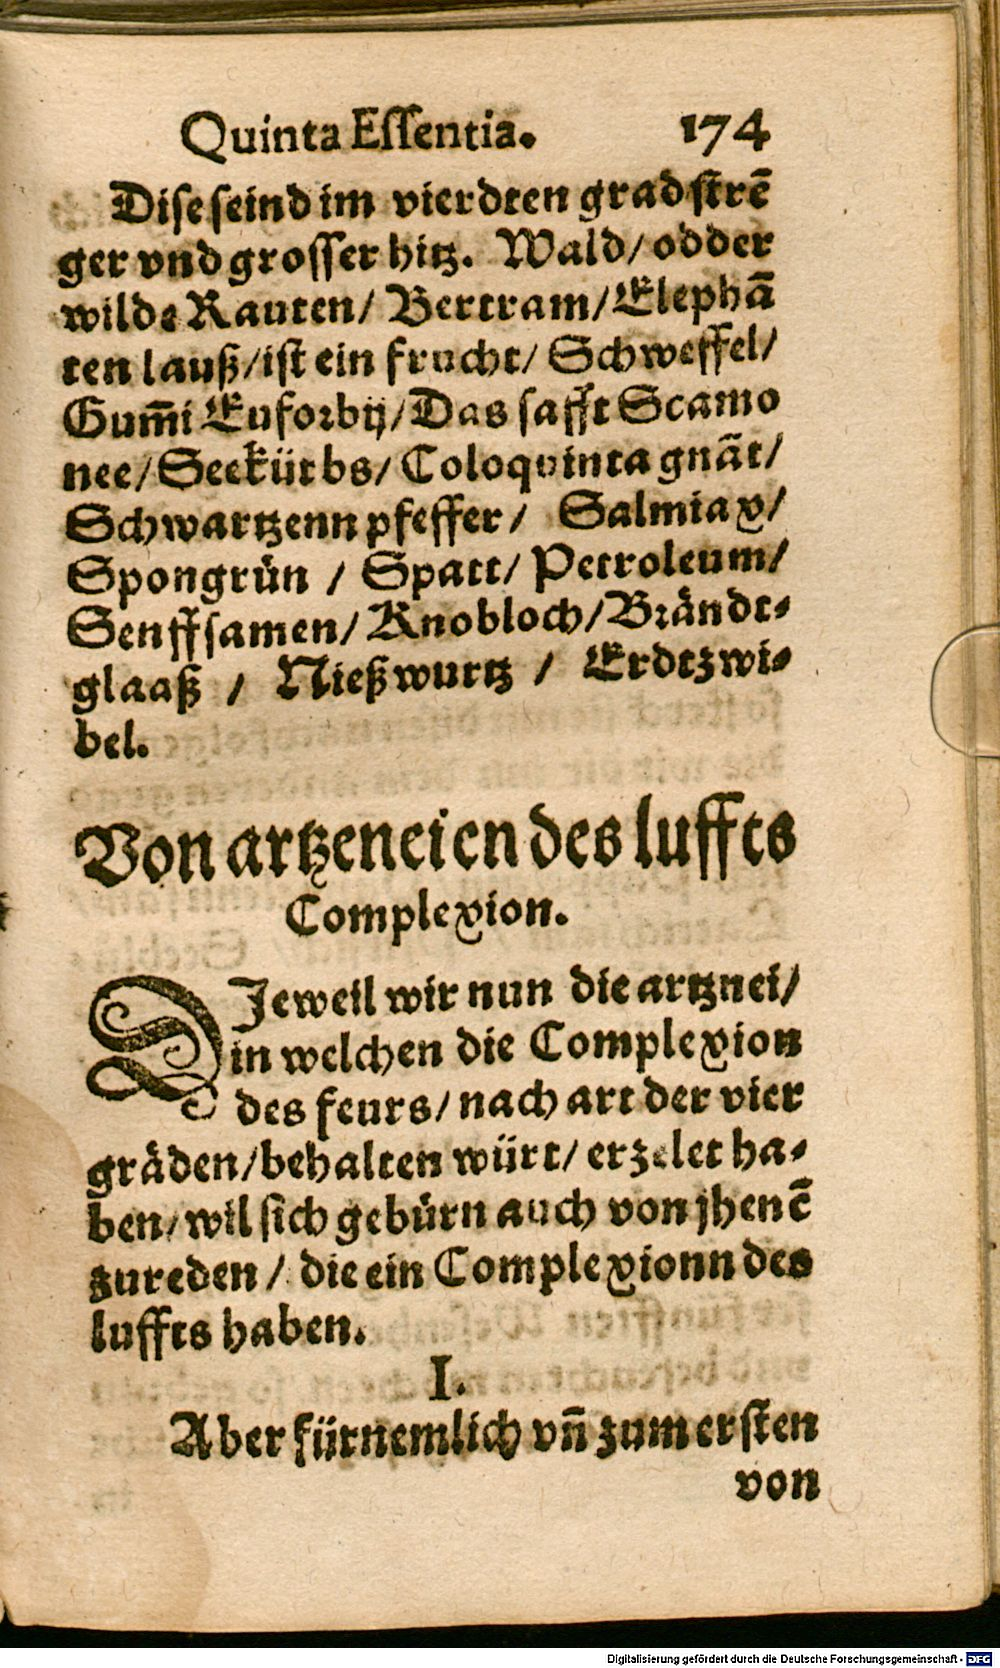 Quinta Eſſentia. 174
Diſe ſeind im vierdten grad ſtrē
ger vnd groſſer hitz. Wald/ odder
wilde Rauten/ Bertram/ Elephā
ten lauß/ iſt ein frucht/ Schweffel/
Gum̄i Euforbij/ Das ſafft Scamo
nee/ Seekürbs/ Coloquinta gnāt/
Schwartzenn pfeffer/ Salmiax/
Spongrün / Spatt/ Petroleum/
Senffſamen/ Knobloch/ Brändt⸗
glaaß / Nießwurtz / Erdtzwi⸗
bel.
Von artzeneien des luffts
Complexion.
DJeweil wir nun die artznei/
in welchen die Complexion
des feurs/ nach art der vier
gräden/ behalten würt/ erzelet ha⸗
ben/ wil ſich gebürn auch von jhenē
zureden/ die ein Complexionn des
luffts haben.
I.
Aber fürnemlich vn̄ zum erſten
von
Digitalisierung gefördert durch die Deutsche Forschungsgemeinschaft - DFG